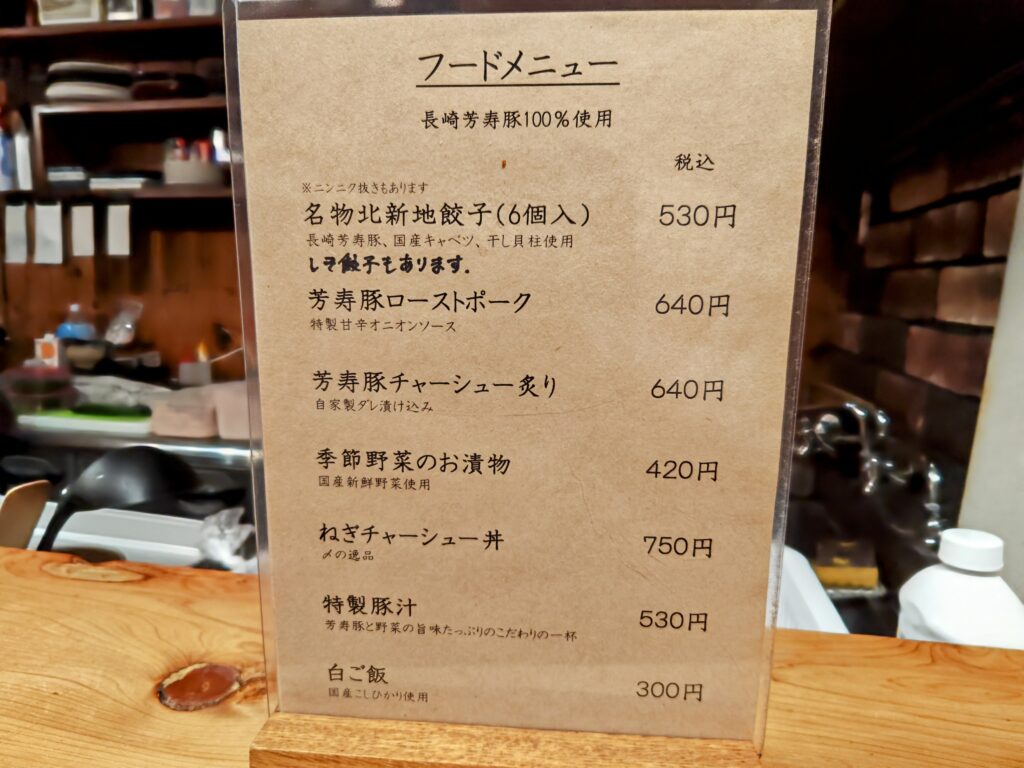 フードメニュー
長崎芳寿豚100%使用
税込
※ニンニク抜きもあります
名物北新地餃子(6個入) 530円
長崎芳寿豚、国産キャベツ、干し貝柱使用
しそ餃子もあります。
芳寿豚ローストポーク 640円
特製甘辛オニオンソース
芳寿豚チャーシュー炙り 640円
自家製ダレ漬け込み
季節野菜のお漬物 420円
国産新鮮野菜使用
ねぎチャーシュー丼 750円
〆の逸品
特製豚汁 530円
芳寿豚と野菜の旨味たっぷりのこだわりの一杯
白ご飯 300円
国産こしひかり使用